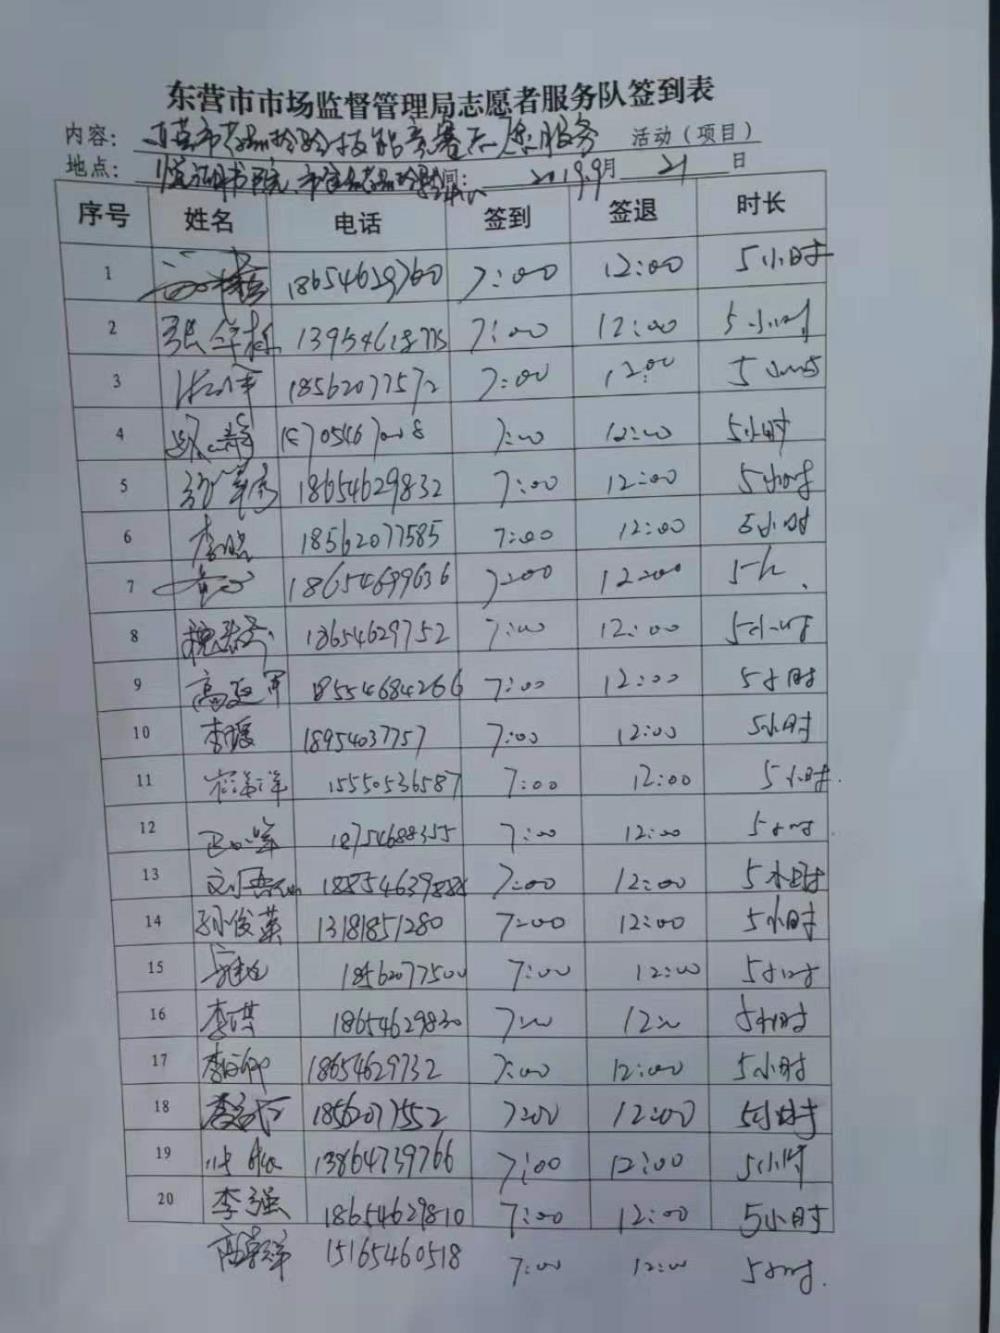 东营市市场监督管理局志愿者服务队签到表
内容： 东营市药品检验技能竞赛志愿服务 活动（项目）
地点： 悦湖书院 市食品药品检 间： 2019.9月 21 日
序号 姓名 电话 签到 签退 时长
1 18654629760 7:00 12:00 5小时
2 张华 7:00 12:00 5小时
3 18562077572 7:00 12:00 5小时
4 7:00 12:00 5小时
5 18654629832 7:00 12:00 5小时
6 李 18562077585 7:00 12:00 5小时
7 18654699636 7:00 12:00 5h.
8 18654629752 7:00 12:00 5小时
9 高延军 18554684266 7:00 12:00 5小时
10 李瑷 18954037757 7:00 12:00 5小时
11 15550536587 7:00 12:00 5小时.
12 18754688355 7:00 12:00 5小时
13 7:00 12:00 5小时
14 孙俊英 13181851280 7:00 12:00 5小时
15 18562077500 7:00 12:00 5小时
16 李琪 18654629830 7:00 12:00 5小时
17 李 18654629732 7:00 12:00 5小时
18 李 18562077552 7:00 12:00 5小时
19 13864739766 7:00 12:00 5小时
20 李强 18654629810 7:00 12:00 5小时
高 15165460518 7:00 12:00 5小时.